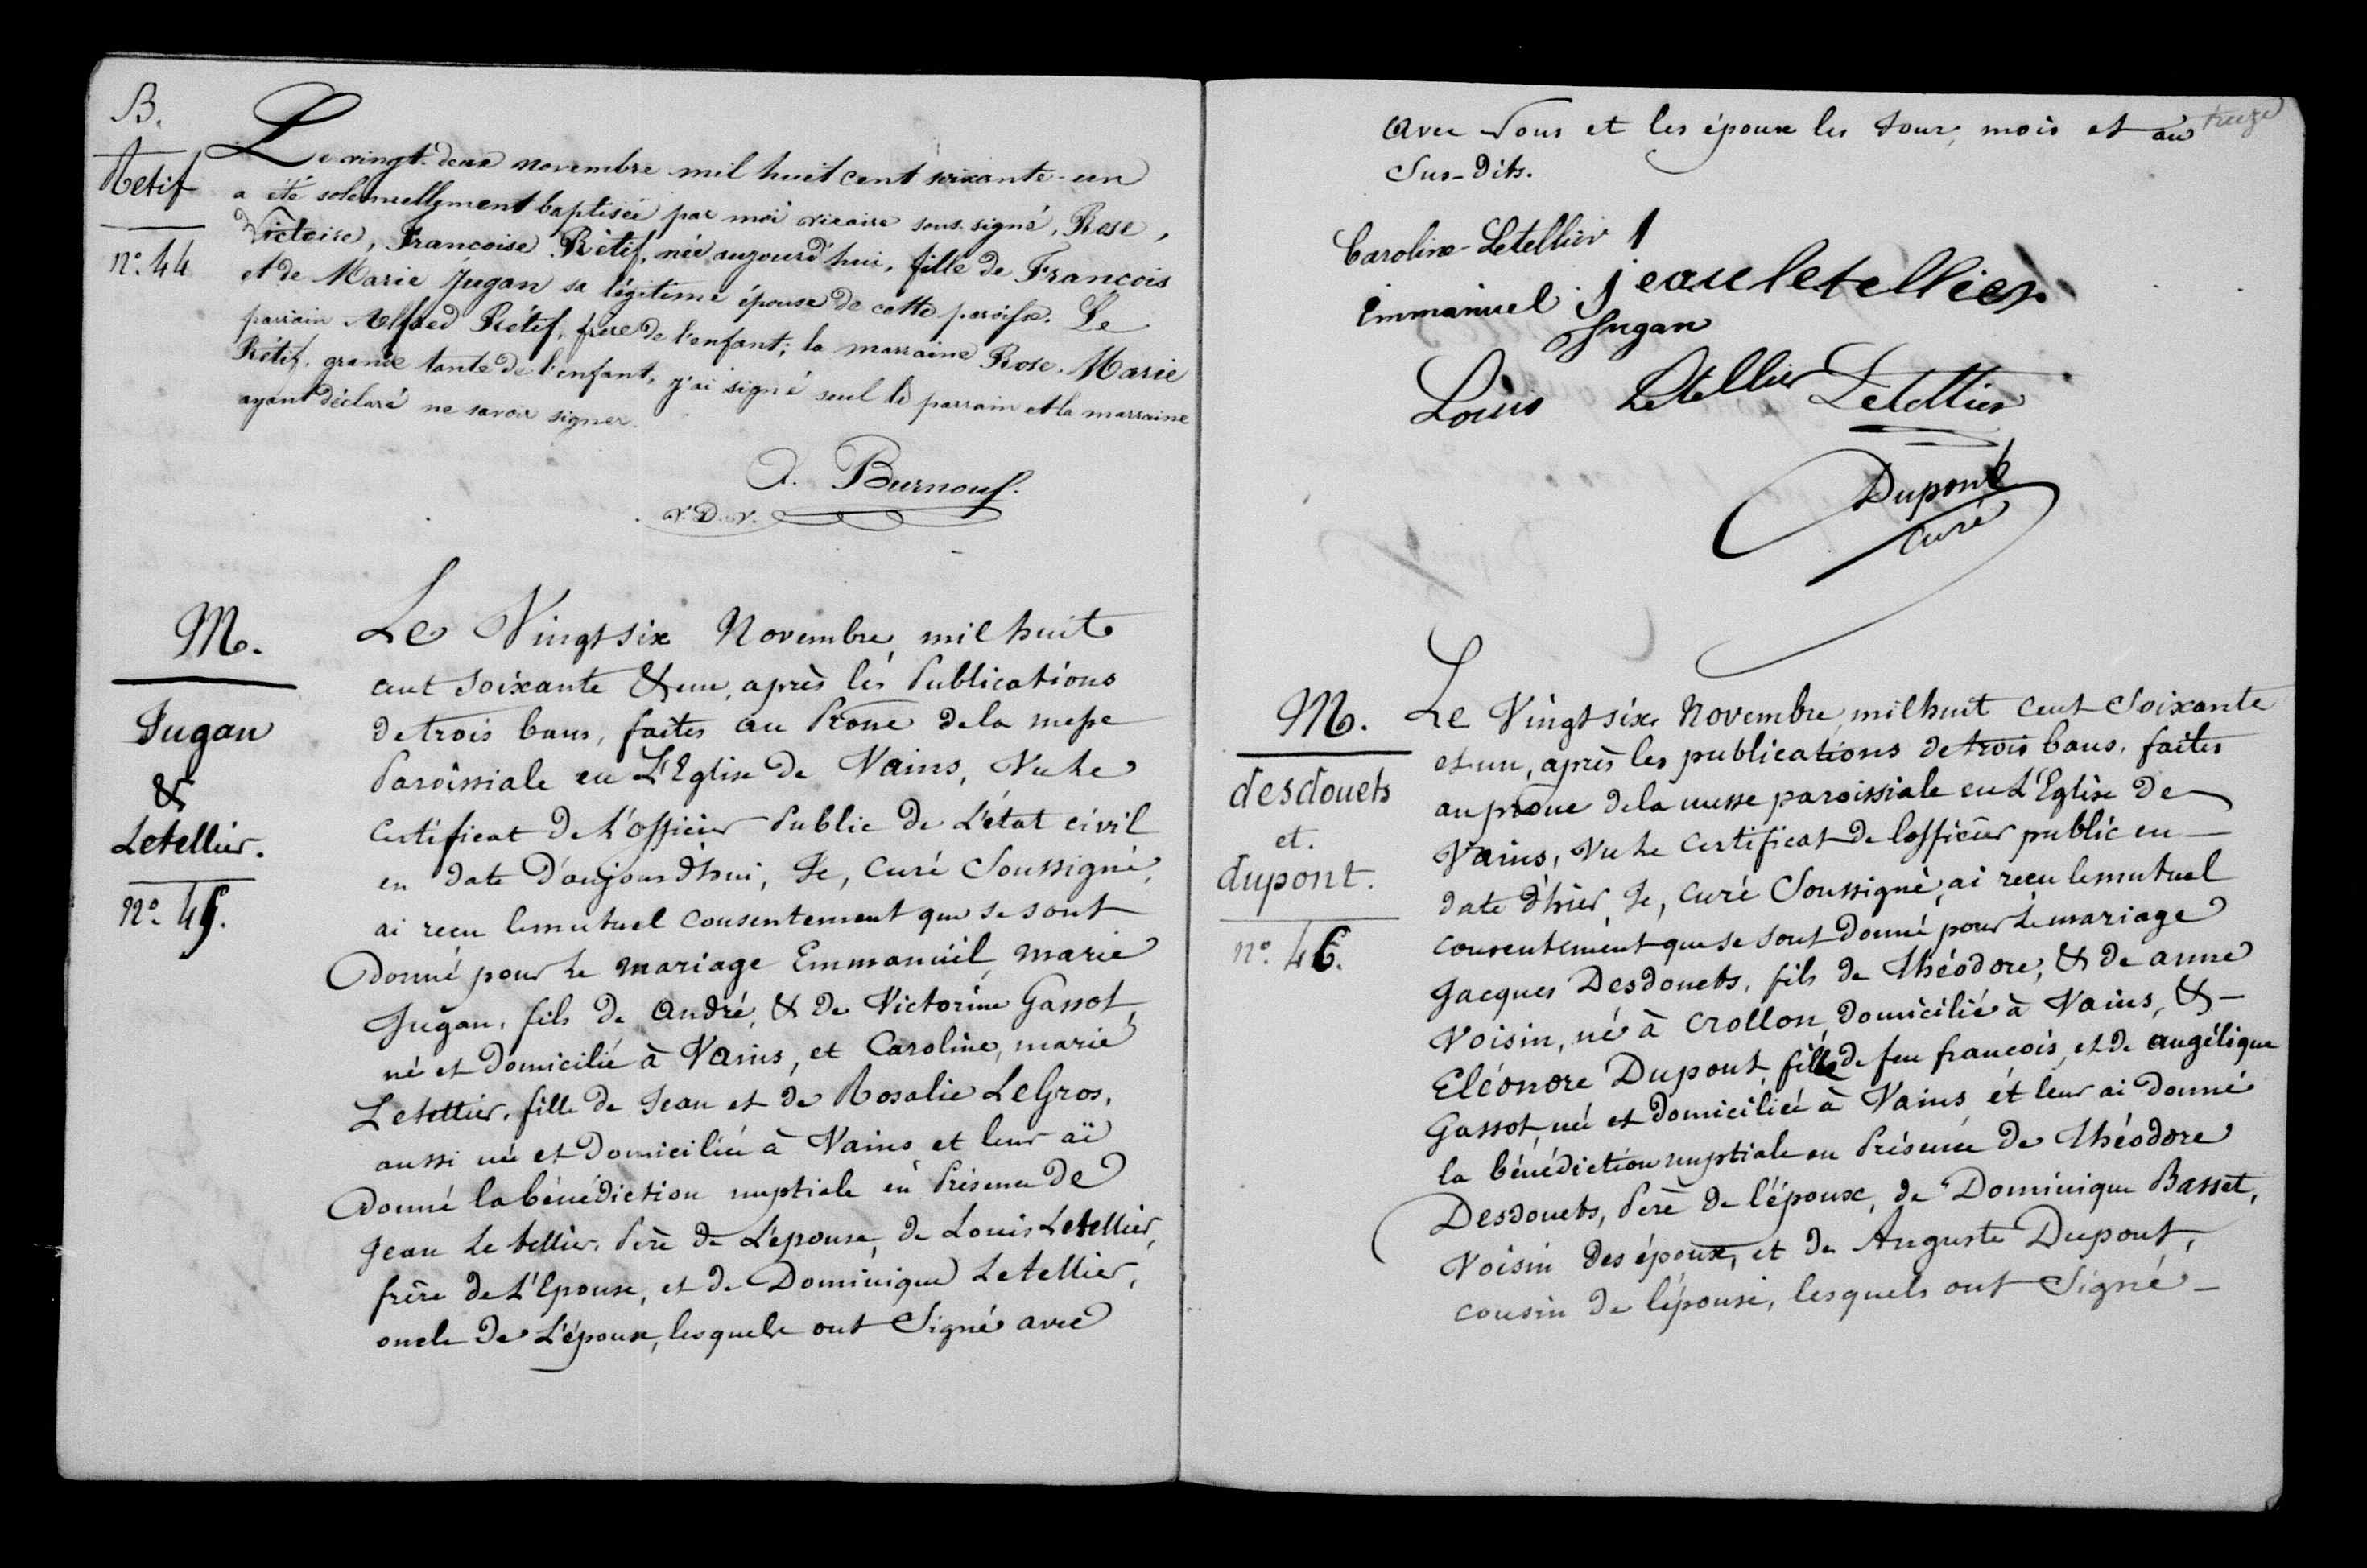 B.
Retif
n°. 44
Le vingt-deux novembre mil huit cent soixante-un
a été solemnellement baptisée par moi vicaire sous-signé, Rose,
Victoire, Francoise Rétif, née aujourd'hui, fille de Francois
et de Marie Jugan sa légitime épouse de cette paroisse. Le
parrain Alfred Rétif, frère de l'enfant; la marraine Rose-Marie
Rétif, grande tante de l'enfant, j'ai signé seul le parrain et la marraine
ayant déclaré ne savoir signer.
A. Burnouf.
v. D. v.
M.
Jugan
&
Letellier.
n°. 45.
Le Vingt six Novembre, mil huit
cent soixante & un, après les Publications
de trois bans, faites au Prône de la messe
Paroissiale en L'Eglise de Vains, Vu le
Certificat de L'officier Public de L'état civil
en date D'aujourd'hui, Je, Curé Soussigné,
ai recu le mutuel consentement que se sont
donné pour le mariage Emmanuel, marie
Jugan, fils de André, & de Victorine Gassot,
né et domicilié à Vains, et Caroline, marie
Letellier, fille de Jean et de Rosalie LeGros,
aussi née et domiciliée à Vains et leur ai
donné la bénédiction nuptiale en Présence de
Jean Le tellier, Père de L'épouse, de Louis Letellier,
frère de L'Epouse, et de Dominique Letellier,
oncle de L'épouse, lesquels ont Signé avec
treize
avec Nous et les époux les Jour, mois et an
Sus-dits.
Caroline-Letellier
jean letellier
Emmanuel Jugan
Louis Letellier Letellier
Dupont
Curé
M.
desdouets
et.
dupont.
n°. 46.
Le Vingt six Novembre, mil huit cent Soixante
et un, après les publications de trois bans, faites
au prône de la messe paroissiale en L'Eglise de
Vains, Vu le Certificat de l'officier public en
date d'hier, Je, Curé Soussigné, ai recu le mutuel
consentement que se sont donné pour Le mariage
Jacques Desdouets, fils de Théodore, & de anne
Voisin, né à Crollon, domicilié à Vains, &
Eléonore Dupont fille de feu francois, et de angélique
Gassot, née et domiciliée à Vains et leur ai donné
la bénédiction nuptiale en Présence de Théodore
Desdouets, Père de l'époux, de Dominique Basset,
Voisin des époux, et de Auguste Dupont,
cousin de l'épouse, lesquels ont Signé